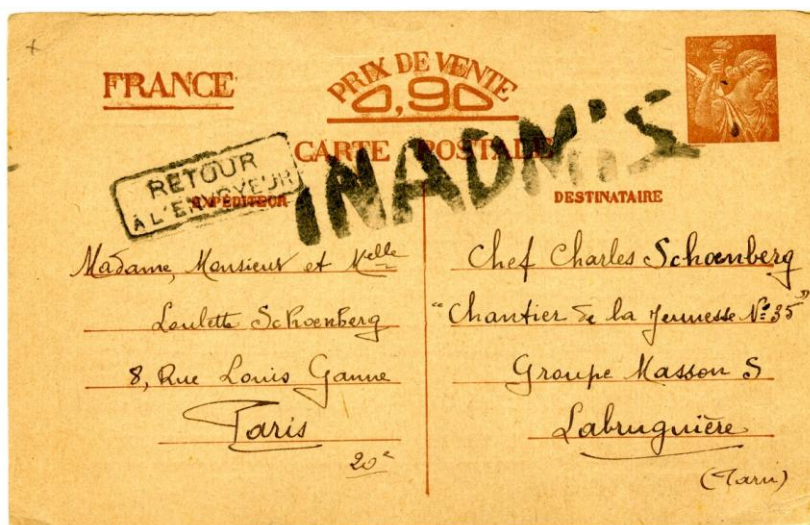 FRANCE
PRIX DE VENTE
0,90
CARTE POSTALE
INADMIS
RETOUR
À L'ENVOYEUR
EXPÉDITEUR
Madame, Monsieur et Melle
Loulette Schoenberg
8, Rue Louis Ganne
Paris
20e
DESTINATAIRE
Chef Charles Schoenberg
"Chantier de la Jeunesse No: 35"
Groupe Masson S
Labruguière
(Tarn)